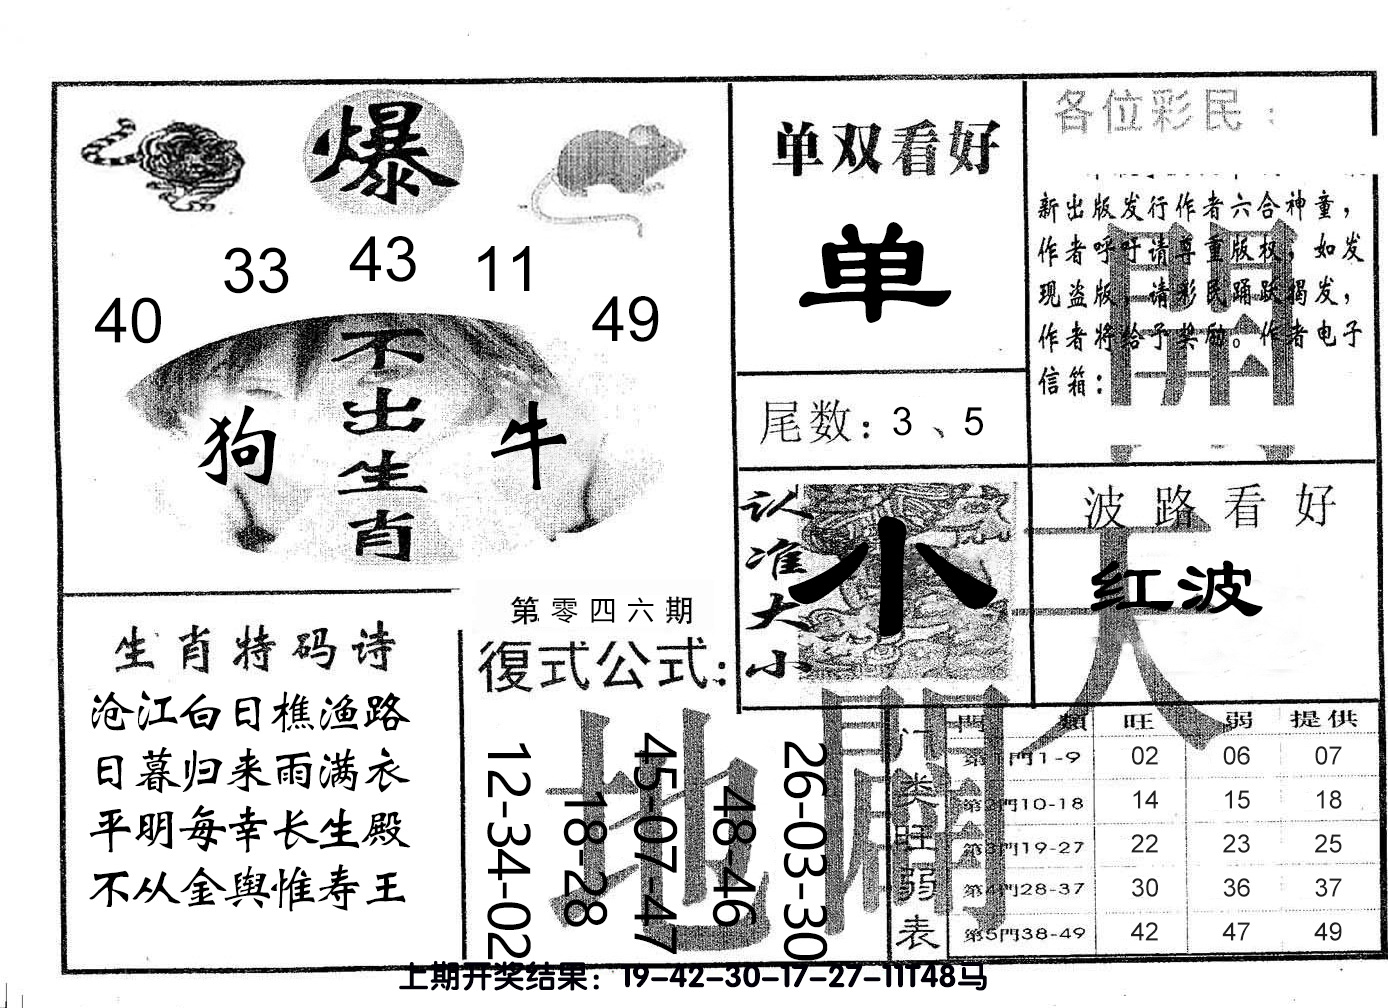 爆
33 43 11
40 49
不出生肖
狗 牛
单双看好
单
尾数：3、5
各位彩民：
新出版发行作者六合神童，
作者呼吁请尊重版权，如发
现盗版，请彩民踊跃揭发，
作者将给予奖励。作者电子
信箱：
认准大小
小
波路看好
红波
天
開
生肖特码诗
沧江白日樵渔路
日暮归来雨满衣
平明每幸长生殿
不从金舆惟寿王
第零四六期
復式公式：
12-34-02
18-28
45-07-47
48-46
26-03-30
地
開
门类旺弱表
門類 旺 弱 提供
第1門1-9 02 06 07
第2門10-18 14 15 18
第3門19-27 22 23 25
第4門28-37 30 36 37
第5門38-49 42 47 49
上期开奖结果：19-42-30-17-27-11T48马